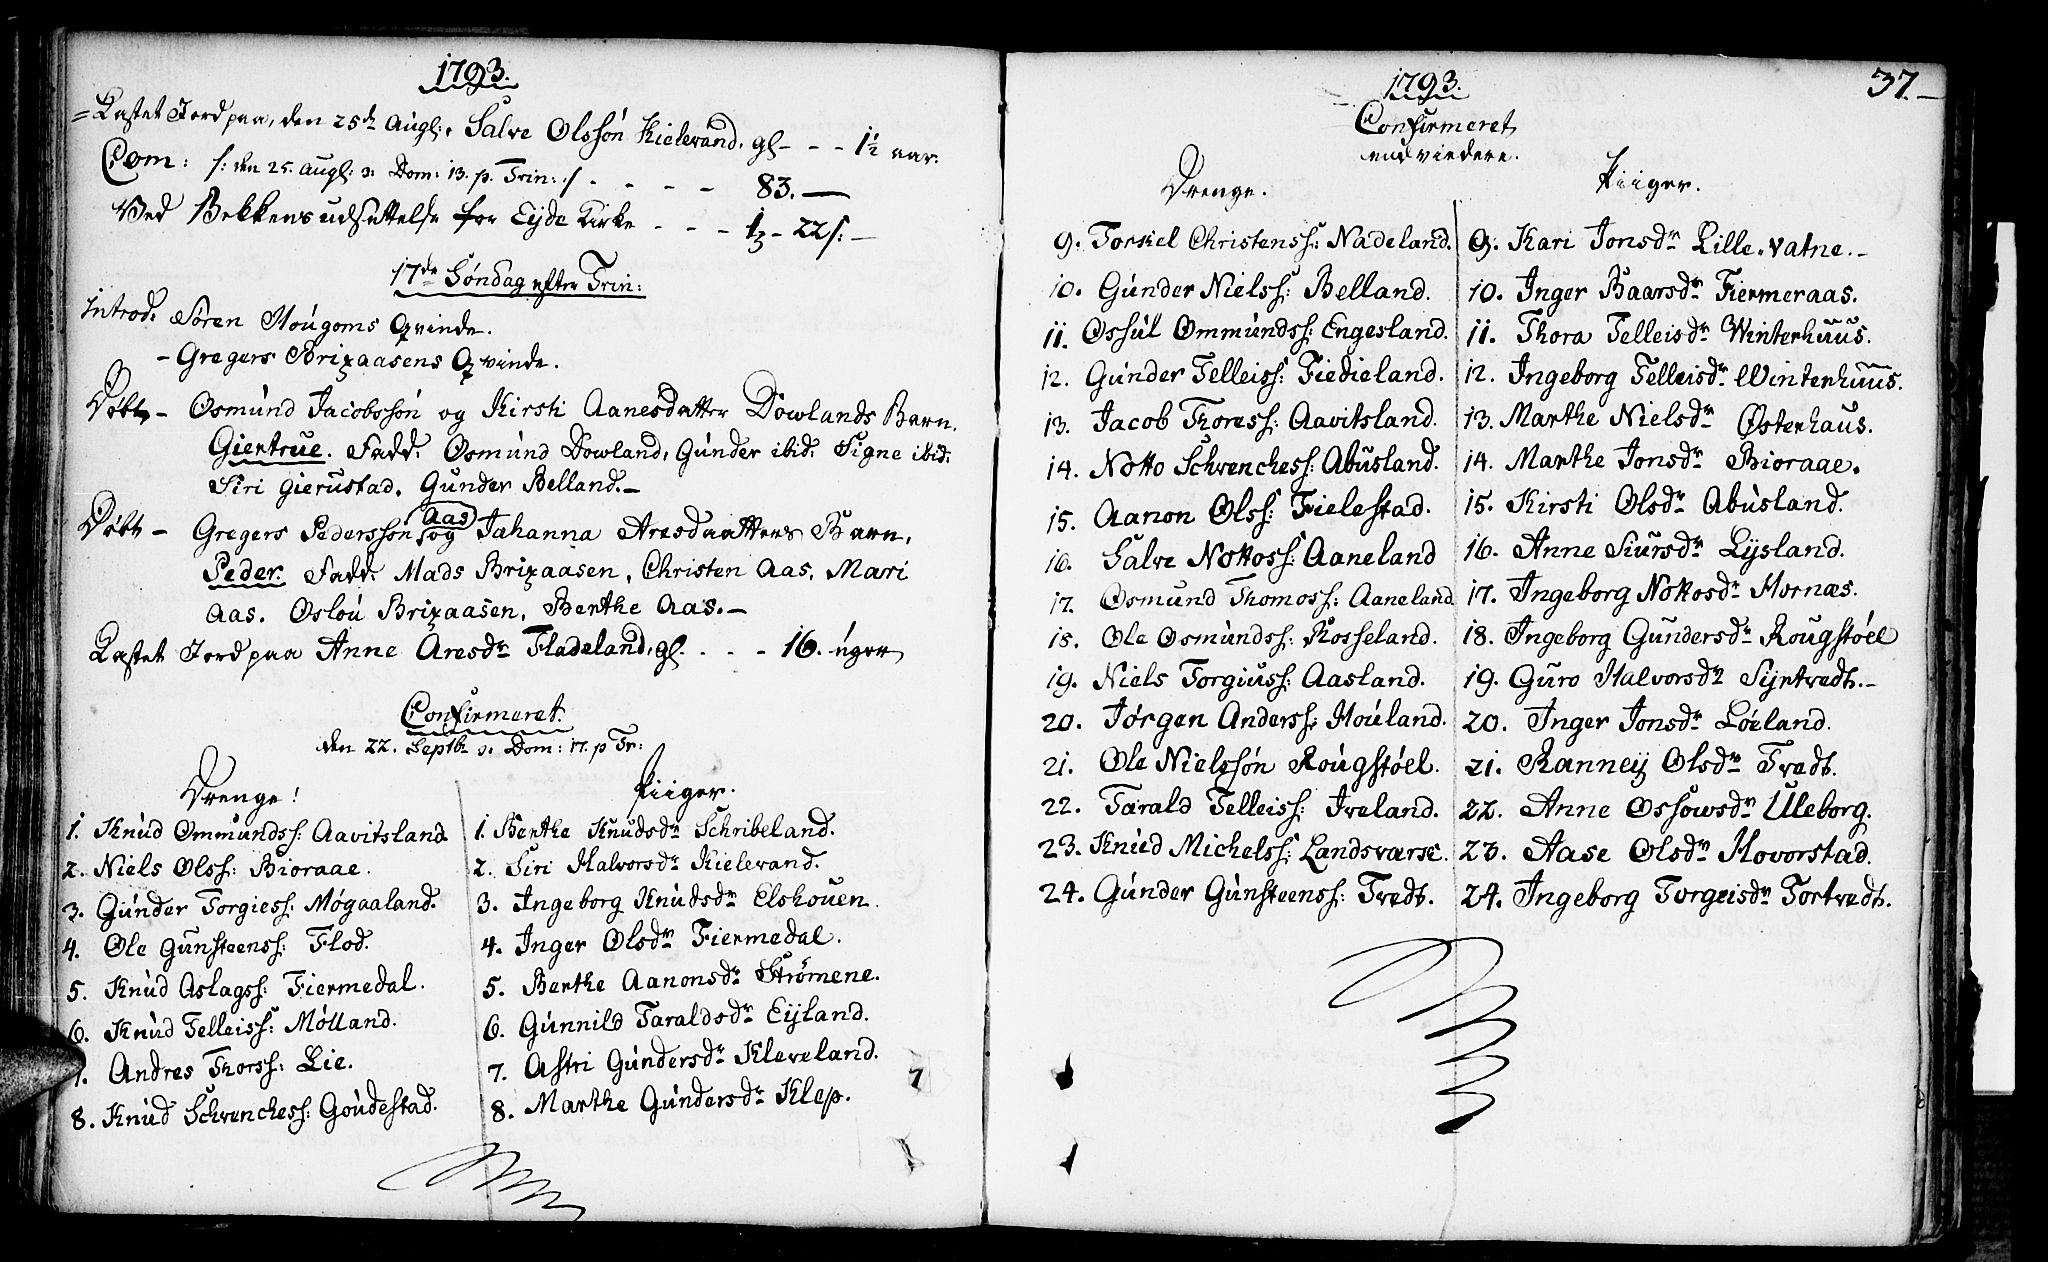 1793.
= Kastet Jord paa, den 25de Augl: Salve Olssøn Kielevand. gl - - - 1½ aar.
Com: /: den 25. Augl: ɔ: Dom: 13. p. Trin: / - - - - 83. —
Ved Bekkens udsettelse for Eyde Kirke - - - 22 s: —
17de Søndag efter Trin:
Introd. Søren Hougoms Qvinde.
- Gregers Brixaasens Qvinde.
Døbt - Osmund Jacobssøn og Kirsti Aanesdatter Dowlands Barn.
Giertrue. Fadd: Osmund Dowland, Gunder ibid: Signe ibid:
Siri Gierustad. Gunder Belland. —
Døbt - Gregers Pederssøn Aas og Johanna Aresdaatters Barn,
Peder. Fadd: Mads Brixaasen, Christen Aas. Mari
Aas. Oslou Brixaasen, Berthe Aas. —
Kastet Jord paa Anne Aresdr Fladeland, gl. - - - 16. uger
Confirmeret.
den 22. Septbr ɔ: Dom: 17. p Tr:
Drenge!
1. Knud Ommundss: Aavitsland
2. Niels Olss: Bioraae.
3. Gunder Torgiess: Møgaaland.
4. Ole Gunsteenss: Flod.
5. Knud Aslagss: Fiermedal.
6. Knud Telleiss: Mølland.
7. Andres Thorss: Lie.
8. Knud Schrenchess: Goudestad.
Piiger.
1. Berthe Knudsdr Schribeland.
2. Siri Halvorsdr Kielevand.
3. Ingeborg Knudsdr Elskouen.
4. Inger Olsdr Fiermedal.
5. Berthe Aanonsdr Strømene.
6. Gunnild Taraldsdr Eyland.
7. Astri Gundersdr Kleveland.
8. Marthe Gundersdr Klep.
1793.
37. —
Confirmeret
endvidere.
Drenge.
9. Torkel Christenss: Nadeland.
10. Gunder Nielss: Belland.
11. Ossul Ommundss: Engesland.
12. Gunder Telleiss: Fiedieland.
13. Jacob Thoress: Aavitsland.
14. Notto Schrenchess: Abusland.
15. Aanon Olss: Fielestad.
16. Salve Nottoss: Aaneland
17. Osmund Thomoss: Aaneland
18. Ole Osmundss: Rosseland.
19. Niels Torgiuss: Aasland.
20. Jørgen Anderss: Houland.
21. Ole Nielssøn Rougstøel.
22. Tarald Telleiss: Iveland.
23. Knud Michelss: Landsværk.
24. Gunder Gunsteenss: Tredt.
Piiger.
9. Kari Jonsdr Lille-vatne. —
10. Inger Baarsdr Fiermeraas.
11. Thora Telleisdr Winterhuus.
12. Ingeborg Telleisdr Winterhuus.
13. Marthe Nielsdr Østerhaus.
14. Marthe Jonsdr Bioraae.
15. Kirsti Olsdr Abusland.
16. Anne Siursdr Lysland.
17. Ingeborg Nottosdr Hornæs.
18. Ingeborg Gundersdr Rougstøel
19. Guro Halvorsdr Syrtredt. —
20. Inger Jonsdr Løeland.
21. Ranney Olsdr Tredt.
22. Anne Ossowsdr Uleborg.
23. Aase Olsdr Hovorstad.
24. Ingeborg Torgeisdr Tortredt.